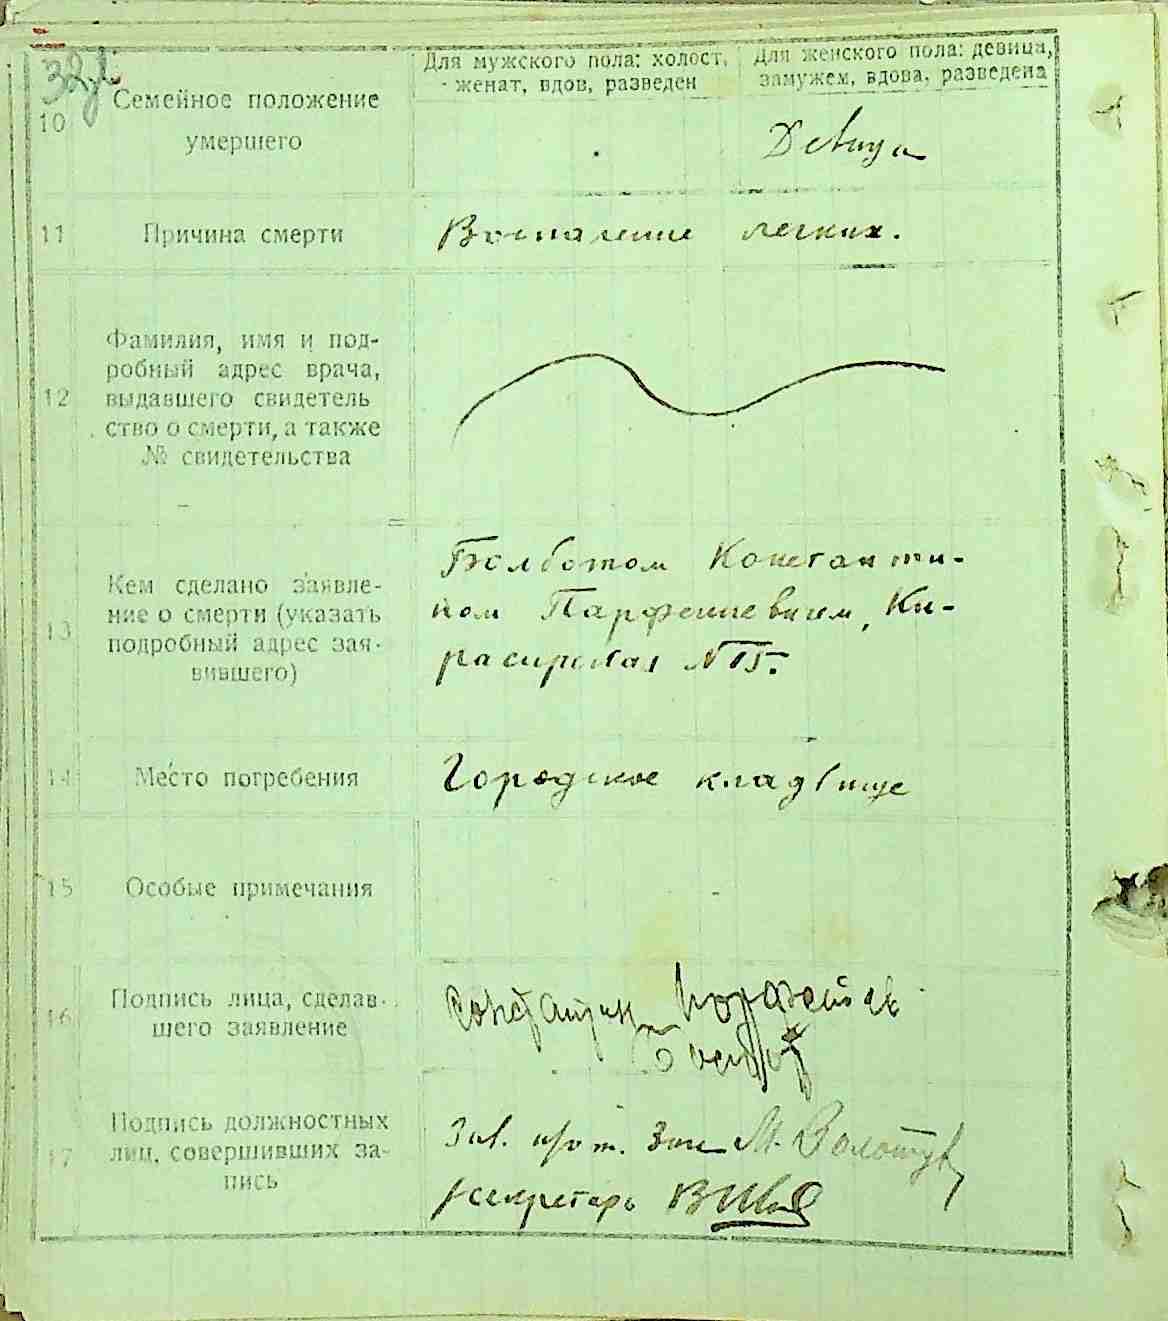 Для мужского пола: холост,
женат, вдов, разведен
Для женского пола: девица,
замужем, вдова, разведена
10
Семейное положение
умершего
Девица
11
Причина смерти
Воспаление легких.
12
Фамилия, имя и под-
робный адрес врача,
выдавшего свидетель
ство о смерти, а также
№ свидетельства
13
Кем сделано заявле-
ние о смерти (указать
подробный адрес зая-
вившего)
Болботом Константи-
ном Парфениевичем, Ки-
расирская №
14
Место погребения
Городское кладбище
15
Особые примечания
16
Подпись лица, сделав-
шего заявление
Константин
17
Подпись должностных
лиц, совершивших за-
пись
Зав. М.
секретарь